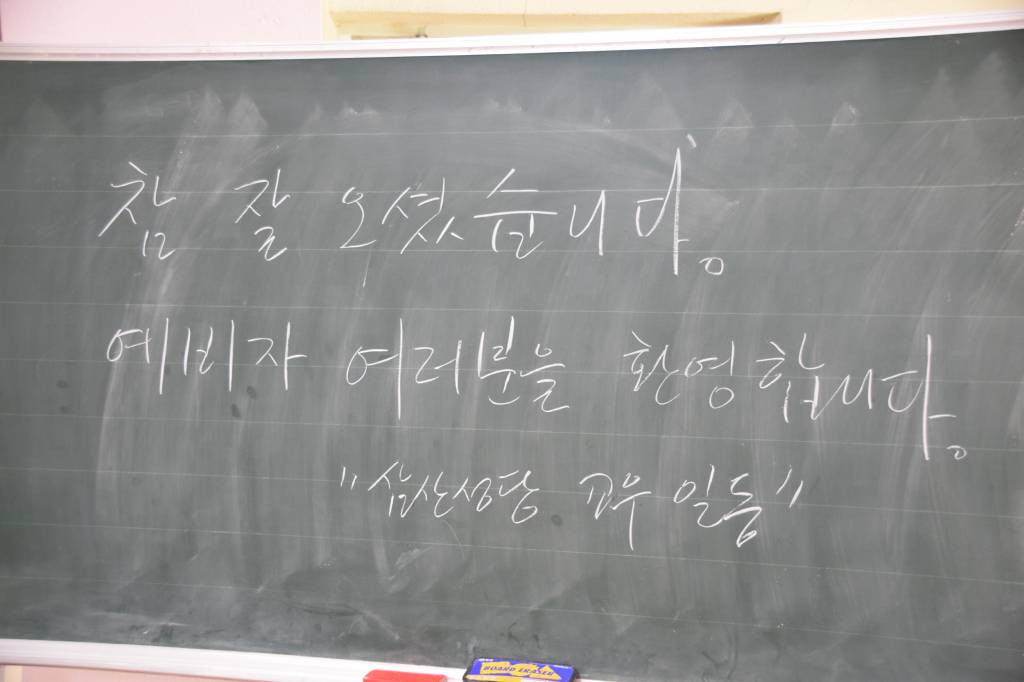 참 잘 오셨습니다.
예비자 여러분을 환영합니다.
"삼산성당 교우 일동"
BOARD ERASER